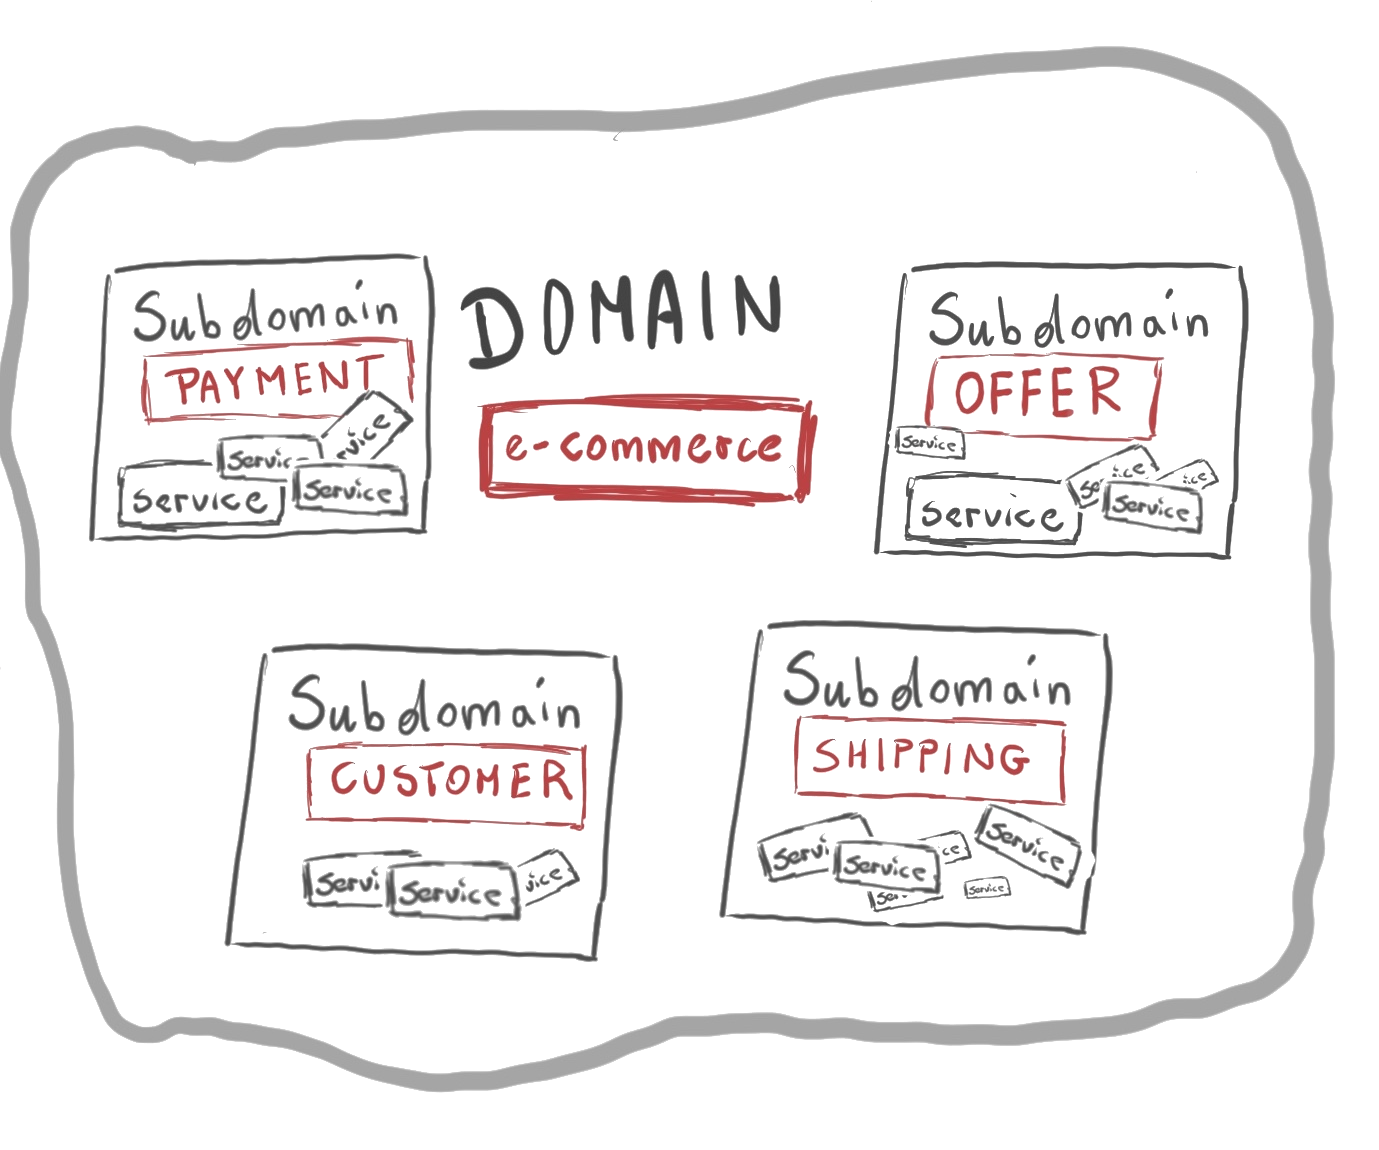 Subdomain
PAYMENT
Service
Service
Service
DOMAIN
e-commerce
Subdomain
OFFER
Service
Service
Service
Subdomain
CUSTOMER
Service
Subdomain
SHIPPING
Service
Service
Service